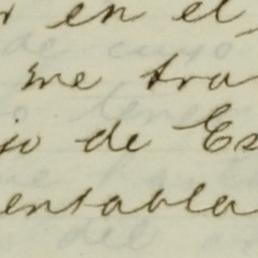 r en el
me tra
jo de Es
entabla